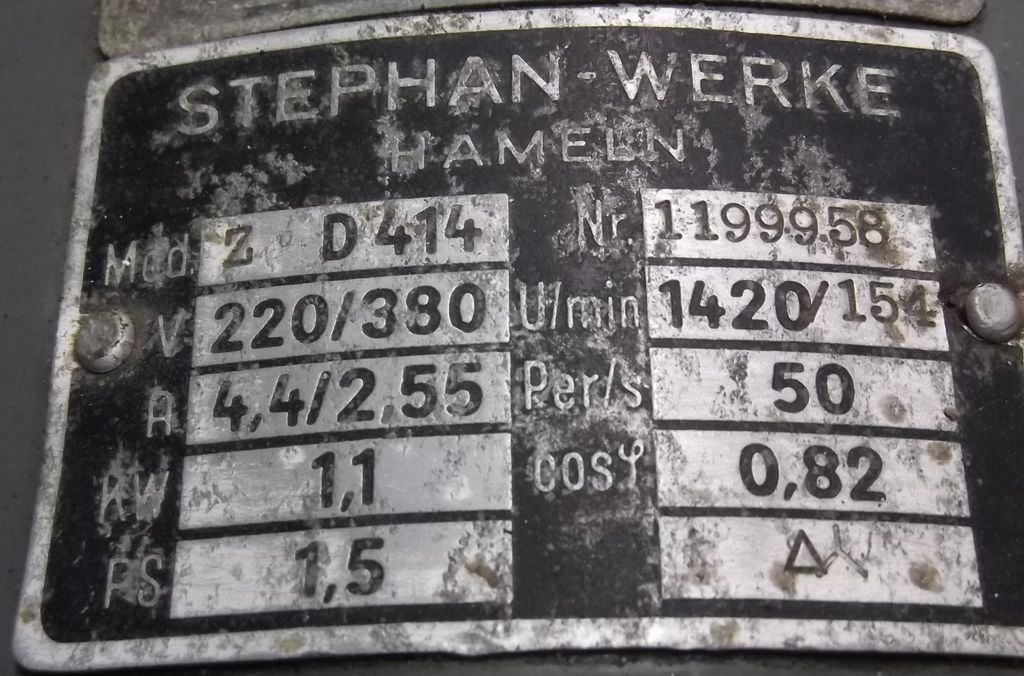 STEPHAN-WERKE
HAMELN
Mod. Z D 414 Nr. 1199958
V 220/380 U/min 1420/154
A 4,4/2,55 Per/s 50
KW 1,1 cosφ 0,82
PS 1,5 Δ⅄